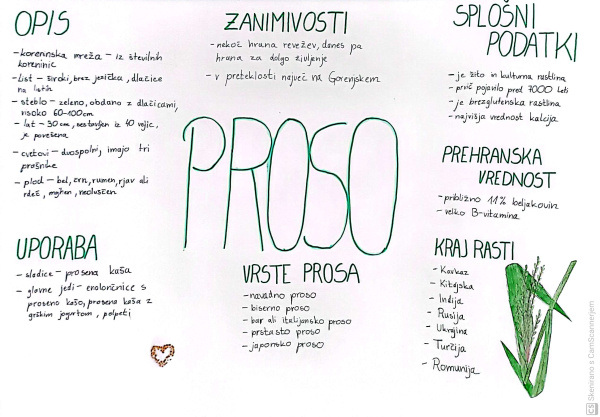 OPIS
- koreninska mreža - iz številnih
koreninic
- list - široki, brez jezička, dlačice
na listih
- steblo - zeleno, obdano z dlačicami,
visoko 60-100cm
- lat - 30 cm, sestavljen iz 40 vejic,
je povešena
- cvetovi - dvospolni, imajo tri
prašnike
- plod - bel, črn, rumen, rjav ali
rdeč, majhen, neoluščen
ZANIMIVOSTI
- nekoč hrana revežev, danes pa
hrana za dolgo življenje
- v preteklosti največ na Gorenjskem
SPLOŠNI
PODATKI
- je žito in kulturna rastlina
- prvič pojavilo pred 7000 leti
- je brezglutenska rastlina
- najvišja vrednost kalcija
PROSO
PREHRANSKA
VREDNOST
- približno 11% beljakovin
- veliko B-vitamina
UPORABA
- sladice - prosena kaša
- glavne jedi - enolončnice s
proseno kašo, prosena kaša z
grškim jogurtom, polpeti
VRSTE PROSA
- navadno proso
- biserno proso
- bar ali italijansko proso
- prstasto proso
- japonsko proso
KRAJ RASTI
- Kavkaz
- Kitajska
- Indija
- Rusija
- Ukrajina
- Turčija
- Romunija
CS Skenirano s CamScannerjem